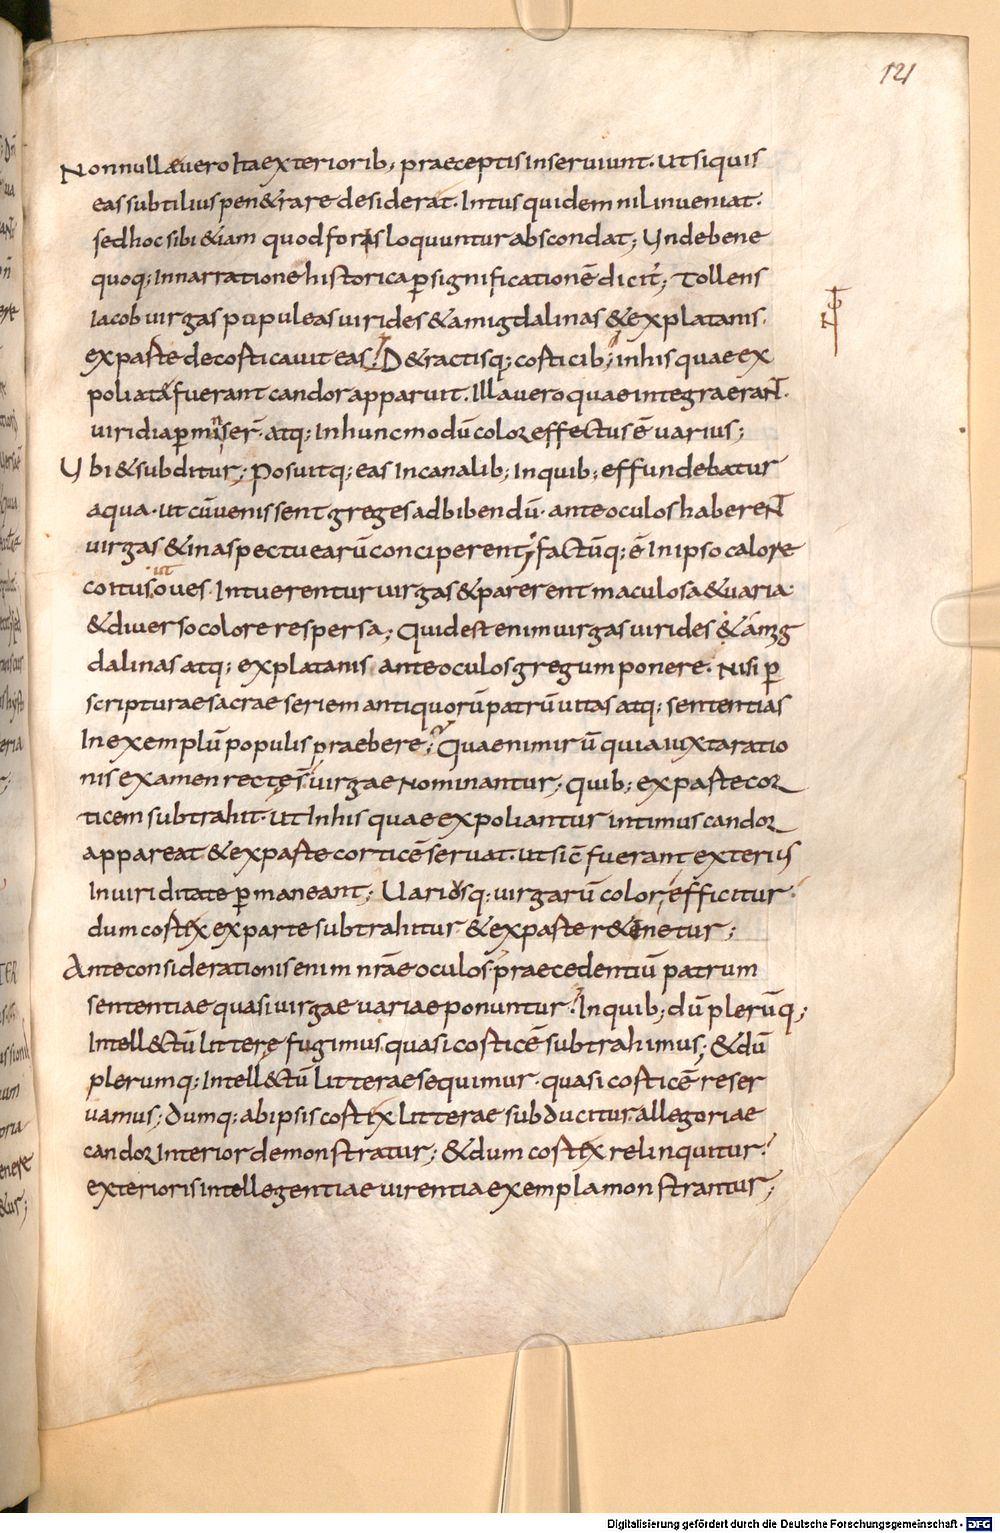 121
Nonnullae vero ita exteriorib; praeceptis inserviunt. ut si quis
eas subtilius pen&rare desiderat. Intus quidem nil inveniat.
sed hoc sibi &iam quod foras loquuntur abscondat; Unde bene
quoq; In narratione historica p significationē dicit; Tollens
Iacob virgas populeas virides & amigdalinas & ex platanis.
ex parte decorticavit eas. D&ractisq; corticib; in his quae ex
poliata fuerant candor apparuit. Illa vero quae integra erant.
viridia permanser̄. atq; In hunc modū color effectus ē varius;
Ubi & subditur; Posuitq; eas In canalib; In quib; effundebatur
aqua. ut cū venissent greges ad bibendū. ante oculos haberent
virgas & in aspectu earū conciperent; factūq; ē In ipso calore
coitus. ut oves Intuerentur virgas & parerent maculosa & varia.
& diverso colore respersa; Quid est enim virgas virides & amig
dalinas atq; ex platanis ante oculos gregum ponere. Nisi p
scripturae sacrae seriem antiquorū patrū vitas atq; sententias
In exemplū populis praebere; Quae nimirū quia iuxta ratio
nis examen rectę s̄ virgae nominantur; Quib; ex parte cor
ticem subtrahit. ut In his quae expoliantur intimus candor
appareat & ex parte corticē servat. ut sic̄ fuerant exterius
In viriditate pmaneant; Variusq; virgarū color efficitur.
dum cortex ex parte subtrahitur & ex parte r&inetur;
Ante considerationis enim nr̄ae oculos praecedentiū patrum
sententiae quasi virgae variae ponuntur. In quib; dū plerūq;
Intell&ctū littere fugimus quasi corticē subtrahimus; & dū
plerumq; Intell&ctū litterae sequimur. quasi corticē reser
vamus; dumq; ab ipsis cortex litterae subducitur allegoriae
candor Interior demonstratur; & dum cortex relinquitur.
exterioris intellegentiae virentia exempla monstrantur;
Digitalisierung gefördert durch die Deutsche Forschungsgemeinschaft - DFG